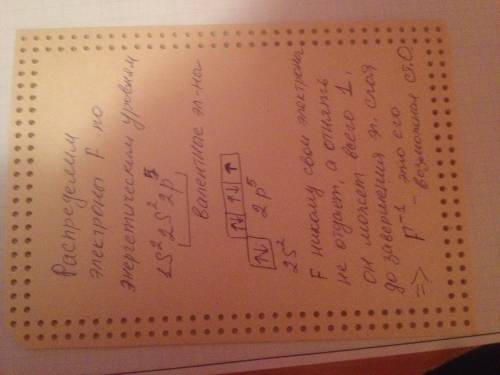 Распределим
электроны F по
энергетическим уровням
1S² 2S² 2p⁵
Валентные эл-на
↑↓ ↑↓ ↑↓ ↑
2S² 2p⁵
F никому свои электроны
не отдает, а отнять
он может всего 1,
до завершения эл. слоя
=> F⁻¹ - это его
возможная ст.О.